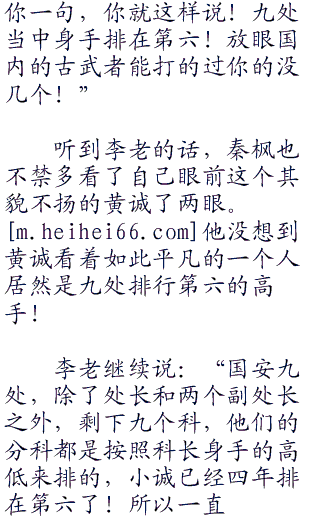 你一句，你就这样说！九处
当中身手排在第六！放眼国
内的古武者能打的过你的没
几个！”
听到李老的话，秦枫也
不禁多看了自己眼前这个其
貌不扬的黄诚了两眼。
[m.heihei66.com]他没想到
黄诚看着如此平凡的一个人
居然是九处排行第六的高
手！
李老继续说：“国安九
处，除了处长和两个副处长
之外，剩下九个科，他们的
分科都是按照科长身手的高
低来排的，小诚已经四年排
在第六了！所以一直